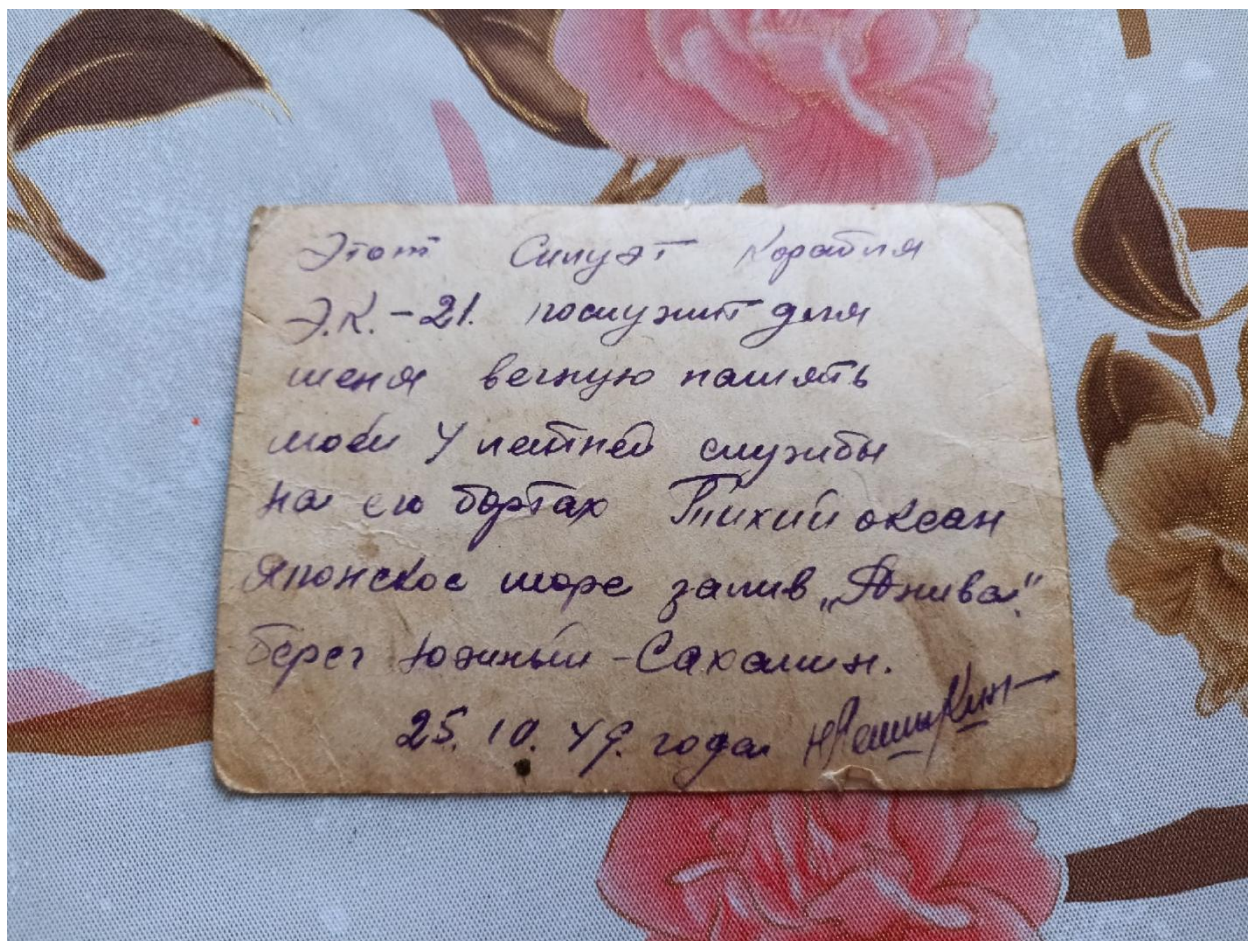 Этот Силуэт Корабля
Э.К.-21. послужит для
меня вечную память
моей 4 летней службы
на его бортах Тихий океан
Японское море залив „Анива".
берег Южный-Сахалин.
25.10.49. года